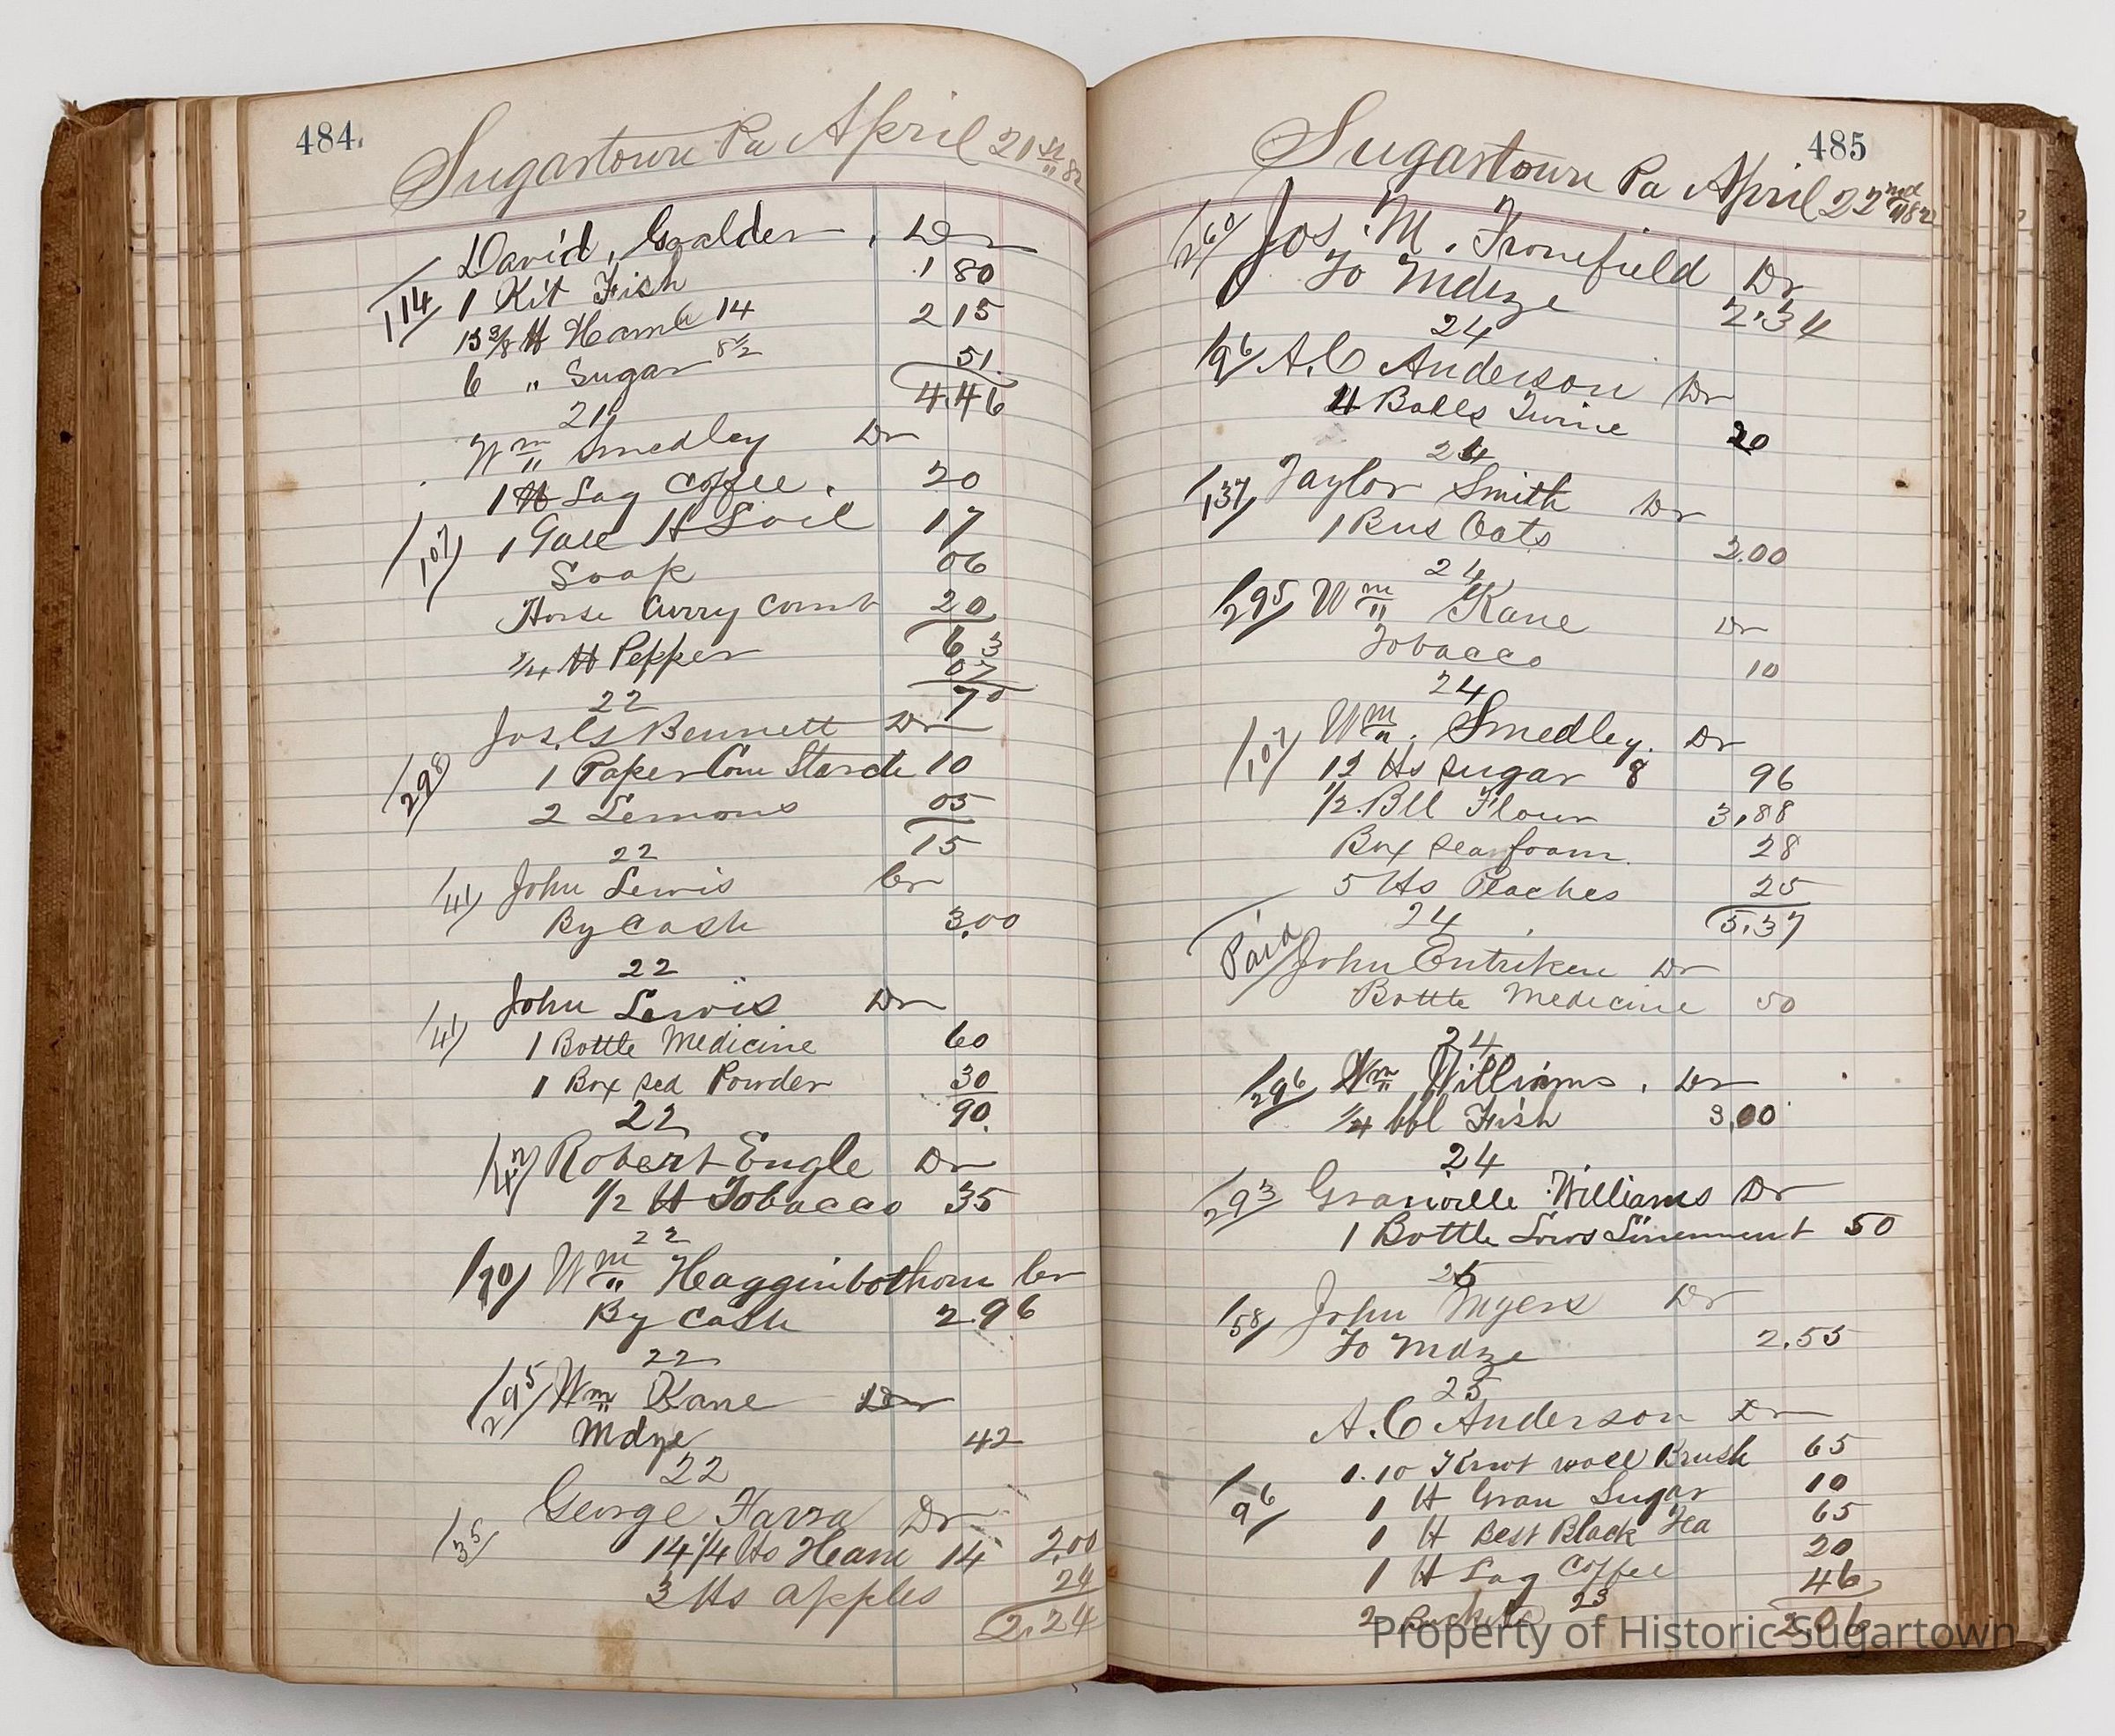 484.
Sugartown Pa April 21st 82
David, Goalder, Dr
114 1 Kit Fish 1 80
15 3/8 lb Ham @ 14 2 15
6 " Sugar 8½ 51
4.46
21
Wm Smedley Dr
1 lb Lag Coffee. 20
107 1 Gall H S oil 17
Soap 06
Horse Curry Comb 20
63
¼ lb Pepper 07
70
22
Jos. Bennett Dr
298 1 Paper Corn Starch 10
2 Lemons 05
15
22
41 John Lewis Cr
By Cash 3.00
22
John Lewis Dr
41 1 Bottle Medicine 60
1 Box sed Powder 30
22 90.
42 Robert Engle Dr
1/2 lb Tobacco 35
22
Wm Hagginbothom Cr
By Cash 2.96
22
295 Wm Kane Dr
Mdze 42
22
George Farra Dr
35 14 1/4 lbs Ham 14 2.00
3 lbs apples 24
2.24
485
Sugartown Pa April 22nd 1882
260 Jos. M. Fronefield Dr
To Mdze 2.34
24
96 A. C Anderson Dr
4 Balls Twine 20
24
137 Taylor Smith Dr
1 Bus Oats 2.00
24
295 Wm Kane Dr
Tobacco 10
24
Wm. Smedley. Dr
107 12 lbs sugar 8 96
1/2 Bll Flour 3.88
Box sea foam 28
5 lbs Peaches 25
24 5.37
Paid John Entriken Dr
Bottle Medicine 50
24
296 Wm Williams. Dr
1/4 bbl Fish 3.00
24
293 Granville Williams Dr
1 Bottle Linement 50
25
58 John Myers Dr
To Mdze 2.55
25
A. C Anderson Dr
1. 10 Knot wall Brush 65
96 1 lb Gran Sugar 10
1 lb Best Black Tea 65
1 lb Lag Coffee 20
2 Buckets 23 46
2.06
Property of Historic Sugartown